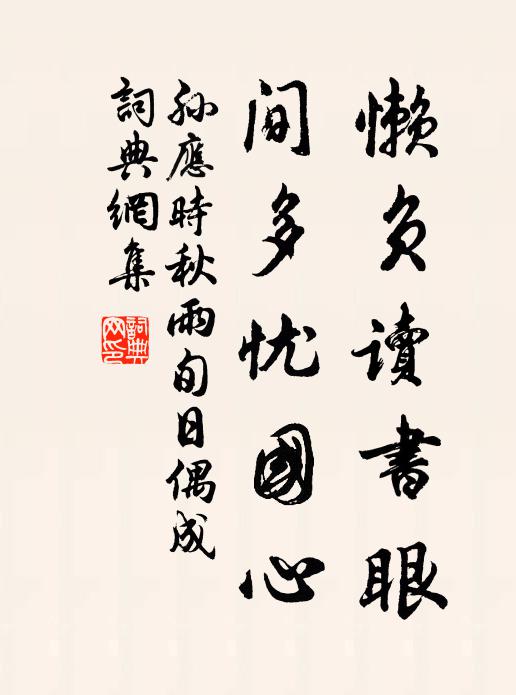 懶負讀書眼
間多忧國心
孙應時秋雨旬日偶成
詞典網集
詞典
网印